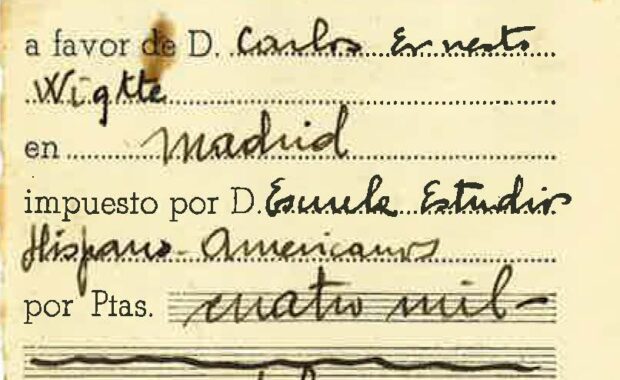 a favor de D. Carlos Ernesto
Wigtte
en Madrid
impuesto por D. Escuela Estudios
Hispano-Americanos
por Ptas. cuatro mil-